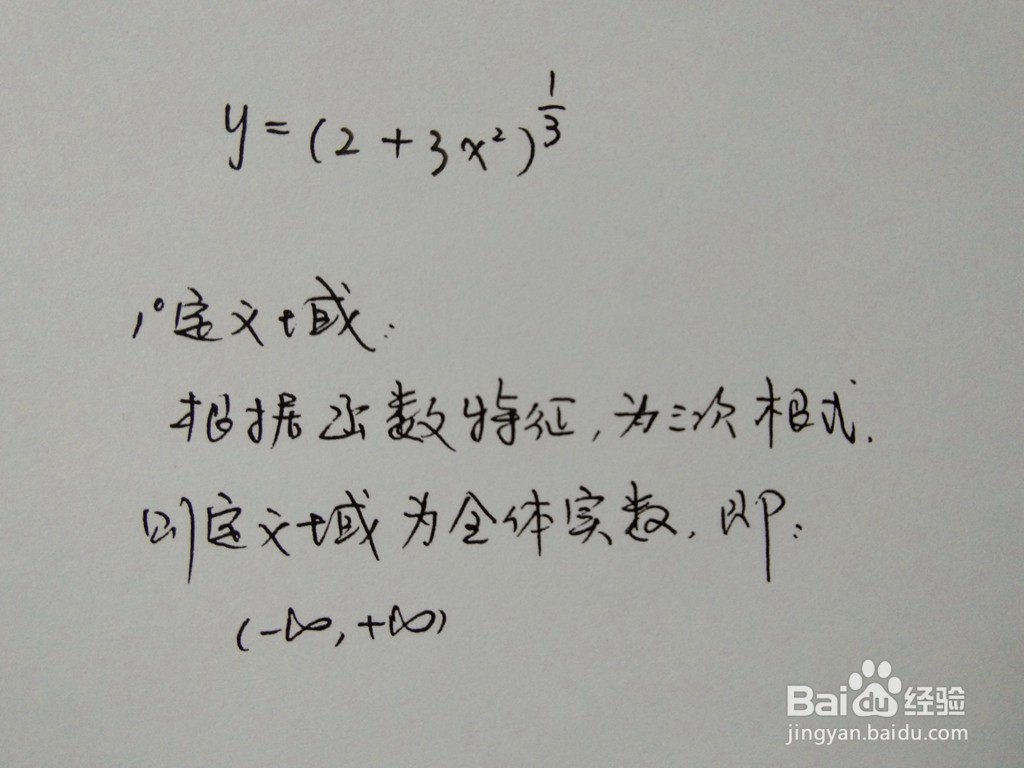 y=(2+3x²)^{1/3}
1°定义域:
根据函数特征,为三次根式.
则定义域为全体实数,即:
(-∞,+∞)
Bai du 经验
jingyan.baidu.com